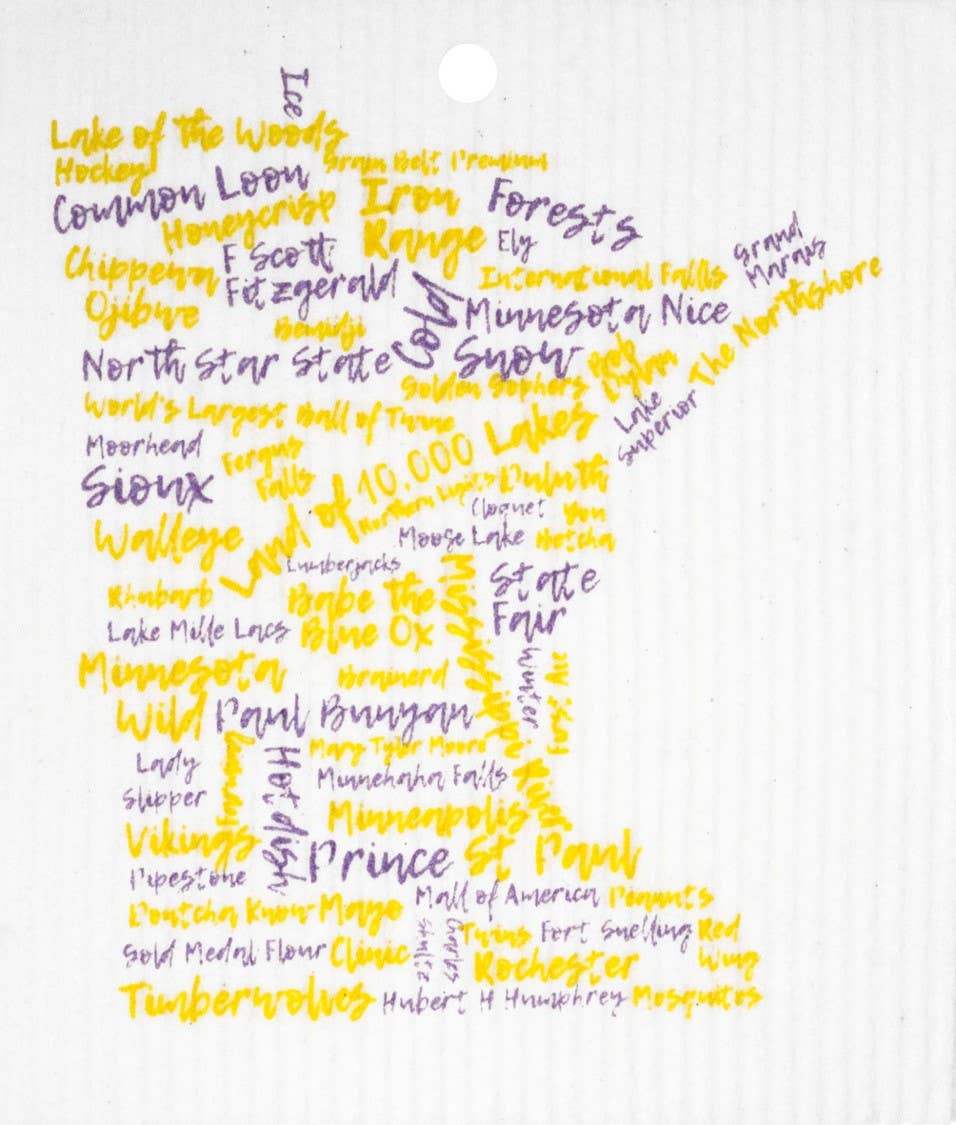 Ice
Lake of the Woods
Hockey
Grain Belt Premium
Common Loon
Iron
Range
Forests
Honeycrisp
F Scott
Fitzgerald
Ely
Grand
Marais
Chippewa
International Falls
Ojibwe
Bemidji
Cold
Minnesota Nice
The Northshore
North Star State
Snow
Bob
Dylan
Golden Gophers
World's Largest Ball of Twine
Lake
Superior
Moorhead
Fergus
Falls
Land of 10,000 Lakes
Sioux
Northern Lights
Duluth
Cloquet
You
Betcha
Walleye
Moose Lake
Lumberjacks
Mississippi River
State
Fair
Rhubarb
Babe the
Blue Ox
Lake Mille Lacs
Minnesota
Wild
Brainerd
Winter
Paul Bunyan
Lady
Slipper
Hot dish
Mary Tyler Moore
Minnehaha Falls
Minneapolis
Vikings
Prince
St Paul
Pipestone
Mall of America
Peanuts
Dontcha Know
Mayo
Clinic
Charles
Shultz
Twins
Fort Snelling
Red
Wing
Gold Medal Flour
Rochester
Timberwolves
Hubert H Humphrey
Mosquitos